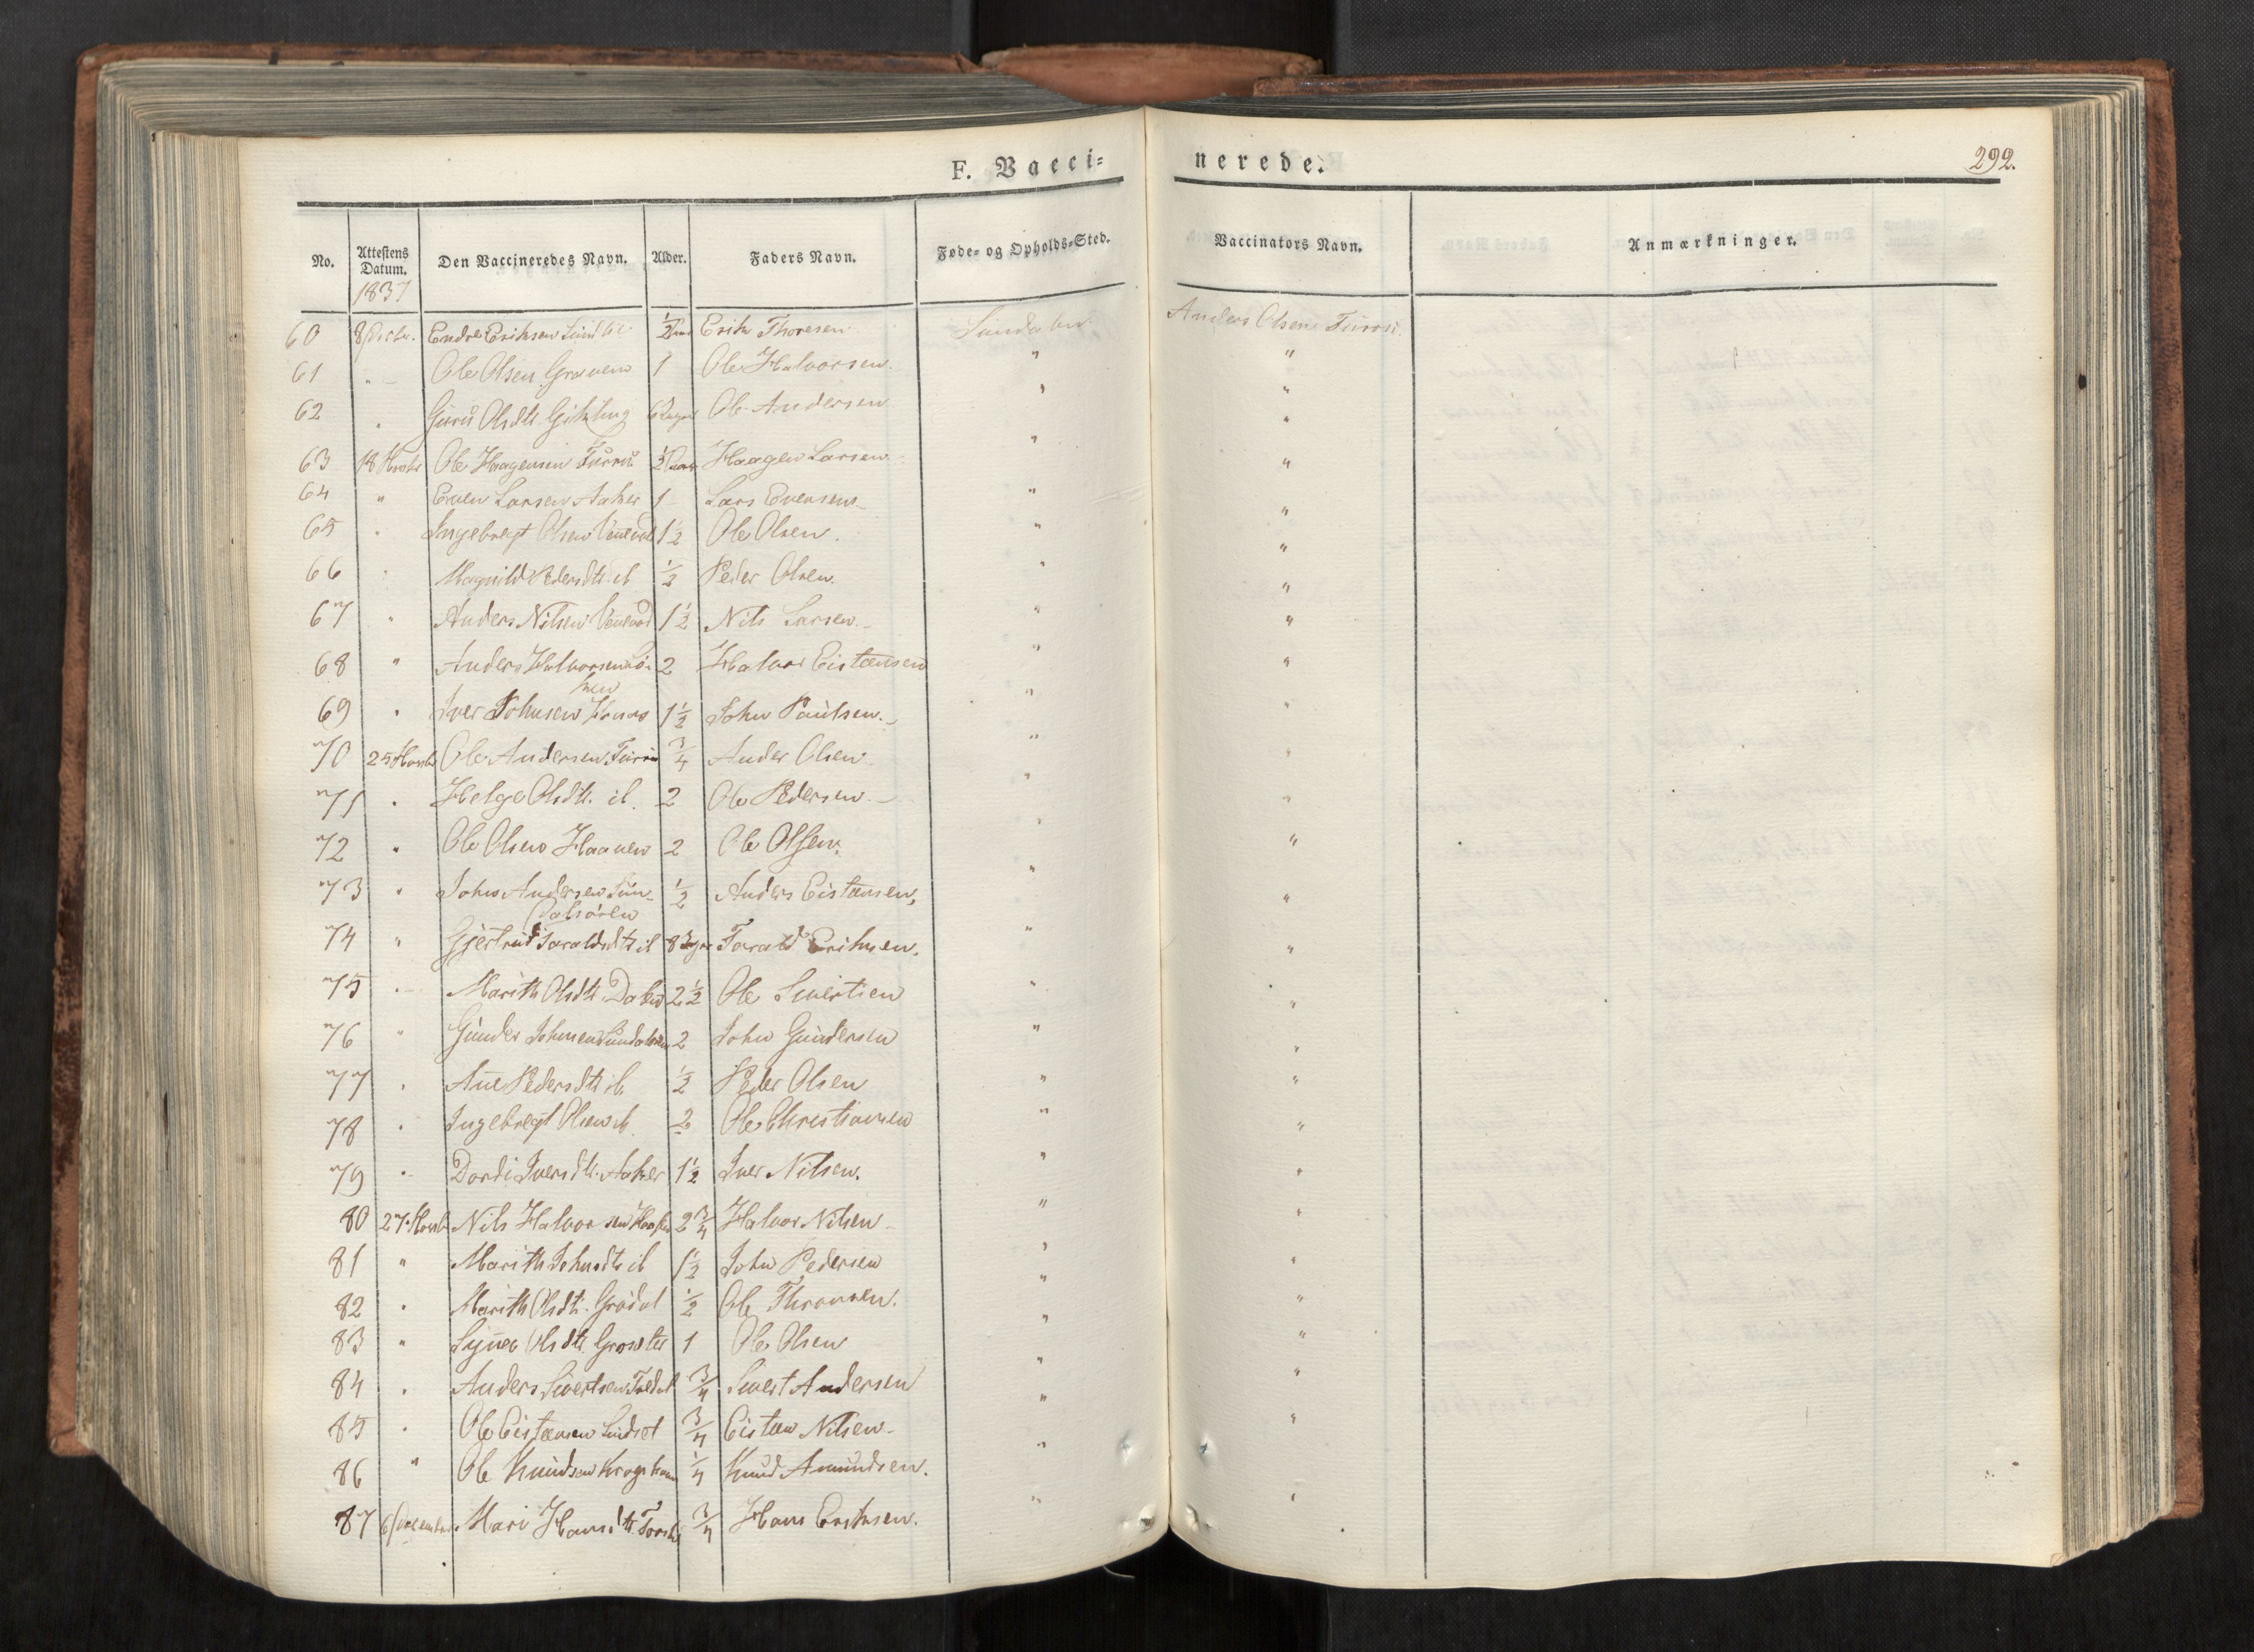 F. Vacci=
nerede.
292.
No. Attestens Datum. Den Vaccineredes Navn. Alder. Faders Navn. Føde= og Opholds=Sted. Vaccinators Navn. Anmærkninger.
1837
60 Endre Eriksen ½ Erik Thoresen Sundalen Anders Olsen
61 " Ole Olsen Graven 1 Ole Halvorsen " "
62 " Guru Olsdtr. 6 Ole Andersen " "
63 18 Ole Haagensen Furru ½ Haagen Larsen " "
64 " Even Larsen Aaker 1 Lars Evensen " "
65 " Ingebregt Olsen 1½ Ole Olsen. " "
66 " Magnild Pedersdtr. ib ½ Peder Olsen. " "
67 " Anders Nilsen 1½ Nils Larsen. " "
68 " Anders Halvorsen 2 Halvor Eistensen " "
69 " Iver Johnsen 1½ John Paulsen. " "
70 25 Ole Andersen Furru ¾ Ander Olsen " "
71 " Helge Olsdtr. ib. 2 Ole Pedersen. " "
72 " Ole Olsen Haaven 2 Ole Olsen. " "
73 " John Andersen Sun-
dalsøren ½ Anders Eistensen, " "
74 " Gjertrud Taraldsdtr ib 8 Tarald Eriksen. " "
75 " Marith Olsdtr. Dalen 2½ Ole Sivertsen " "
76 " Gunder Johnsen Sundalsøren 2 John Gundersen " "
77 " Ane Pedersdtr ib. ½ Peder Olsen " "
78 " Ingebregt Olsen ib. 2 Ole Christiansen " "
79 " Dordi Iversdtr. Aaker 1½ Iver Nilsen. " "
80 27. Nils Halvorsen 2¾ Halvor Nilsen " "
81 " Marith Johnsdtr ib 1½ John Pedersen " "
82 " Marith Olsdtr. Grødal ½ Ole Thronsen. " "
83 " Olsdtr. 1 Ole Olsen " "
84 " Anders Sivertsen ¾ Sivert Andersen " "
85 " Ole Eistensen Lindset ¾ Eisten Nilsen " "
86 " Ole Knudsen ¼ Knud Amundsen. " "
87 6 December Mari Hansdtr. ¾ Hans Eriksen. " "